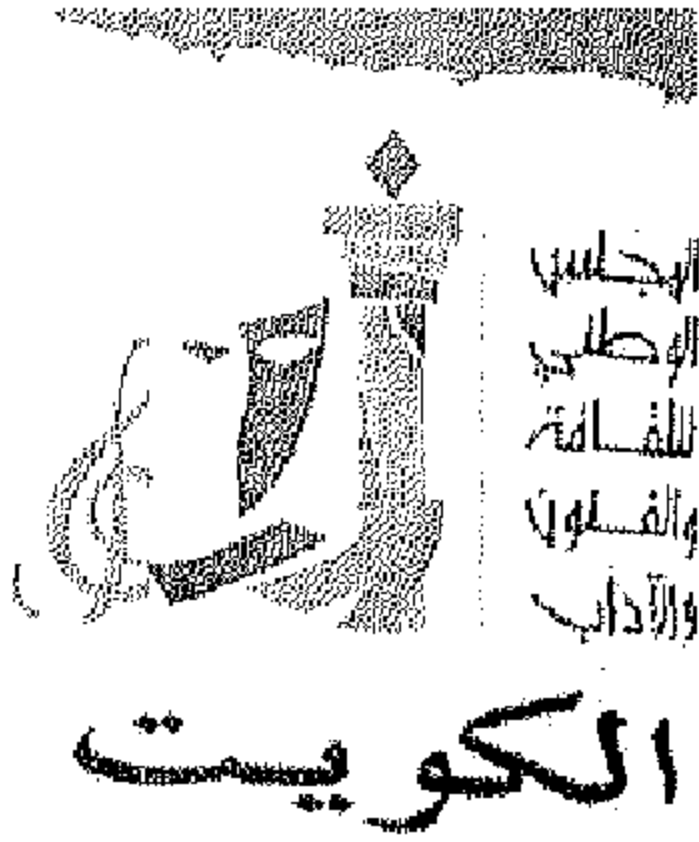 المجلس
الوطني
للثقافة
والفنون
والآداب
الكويت